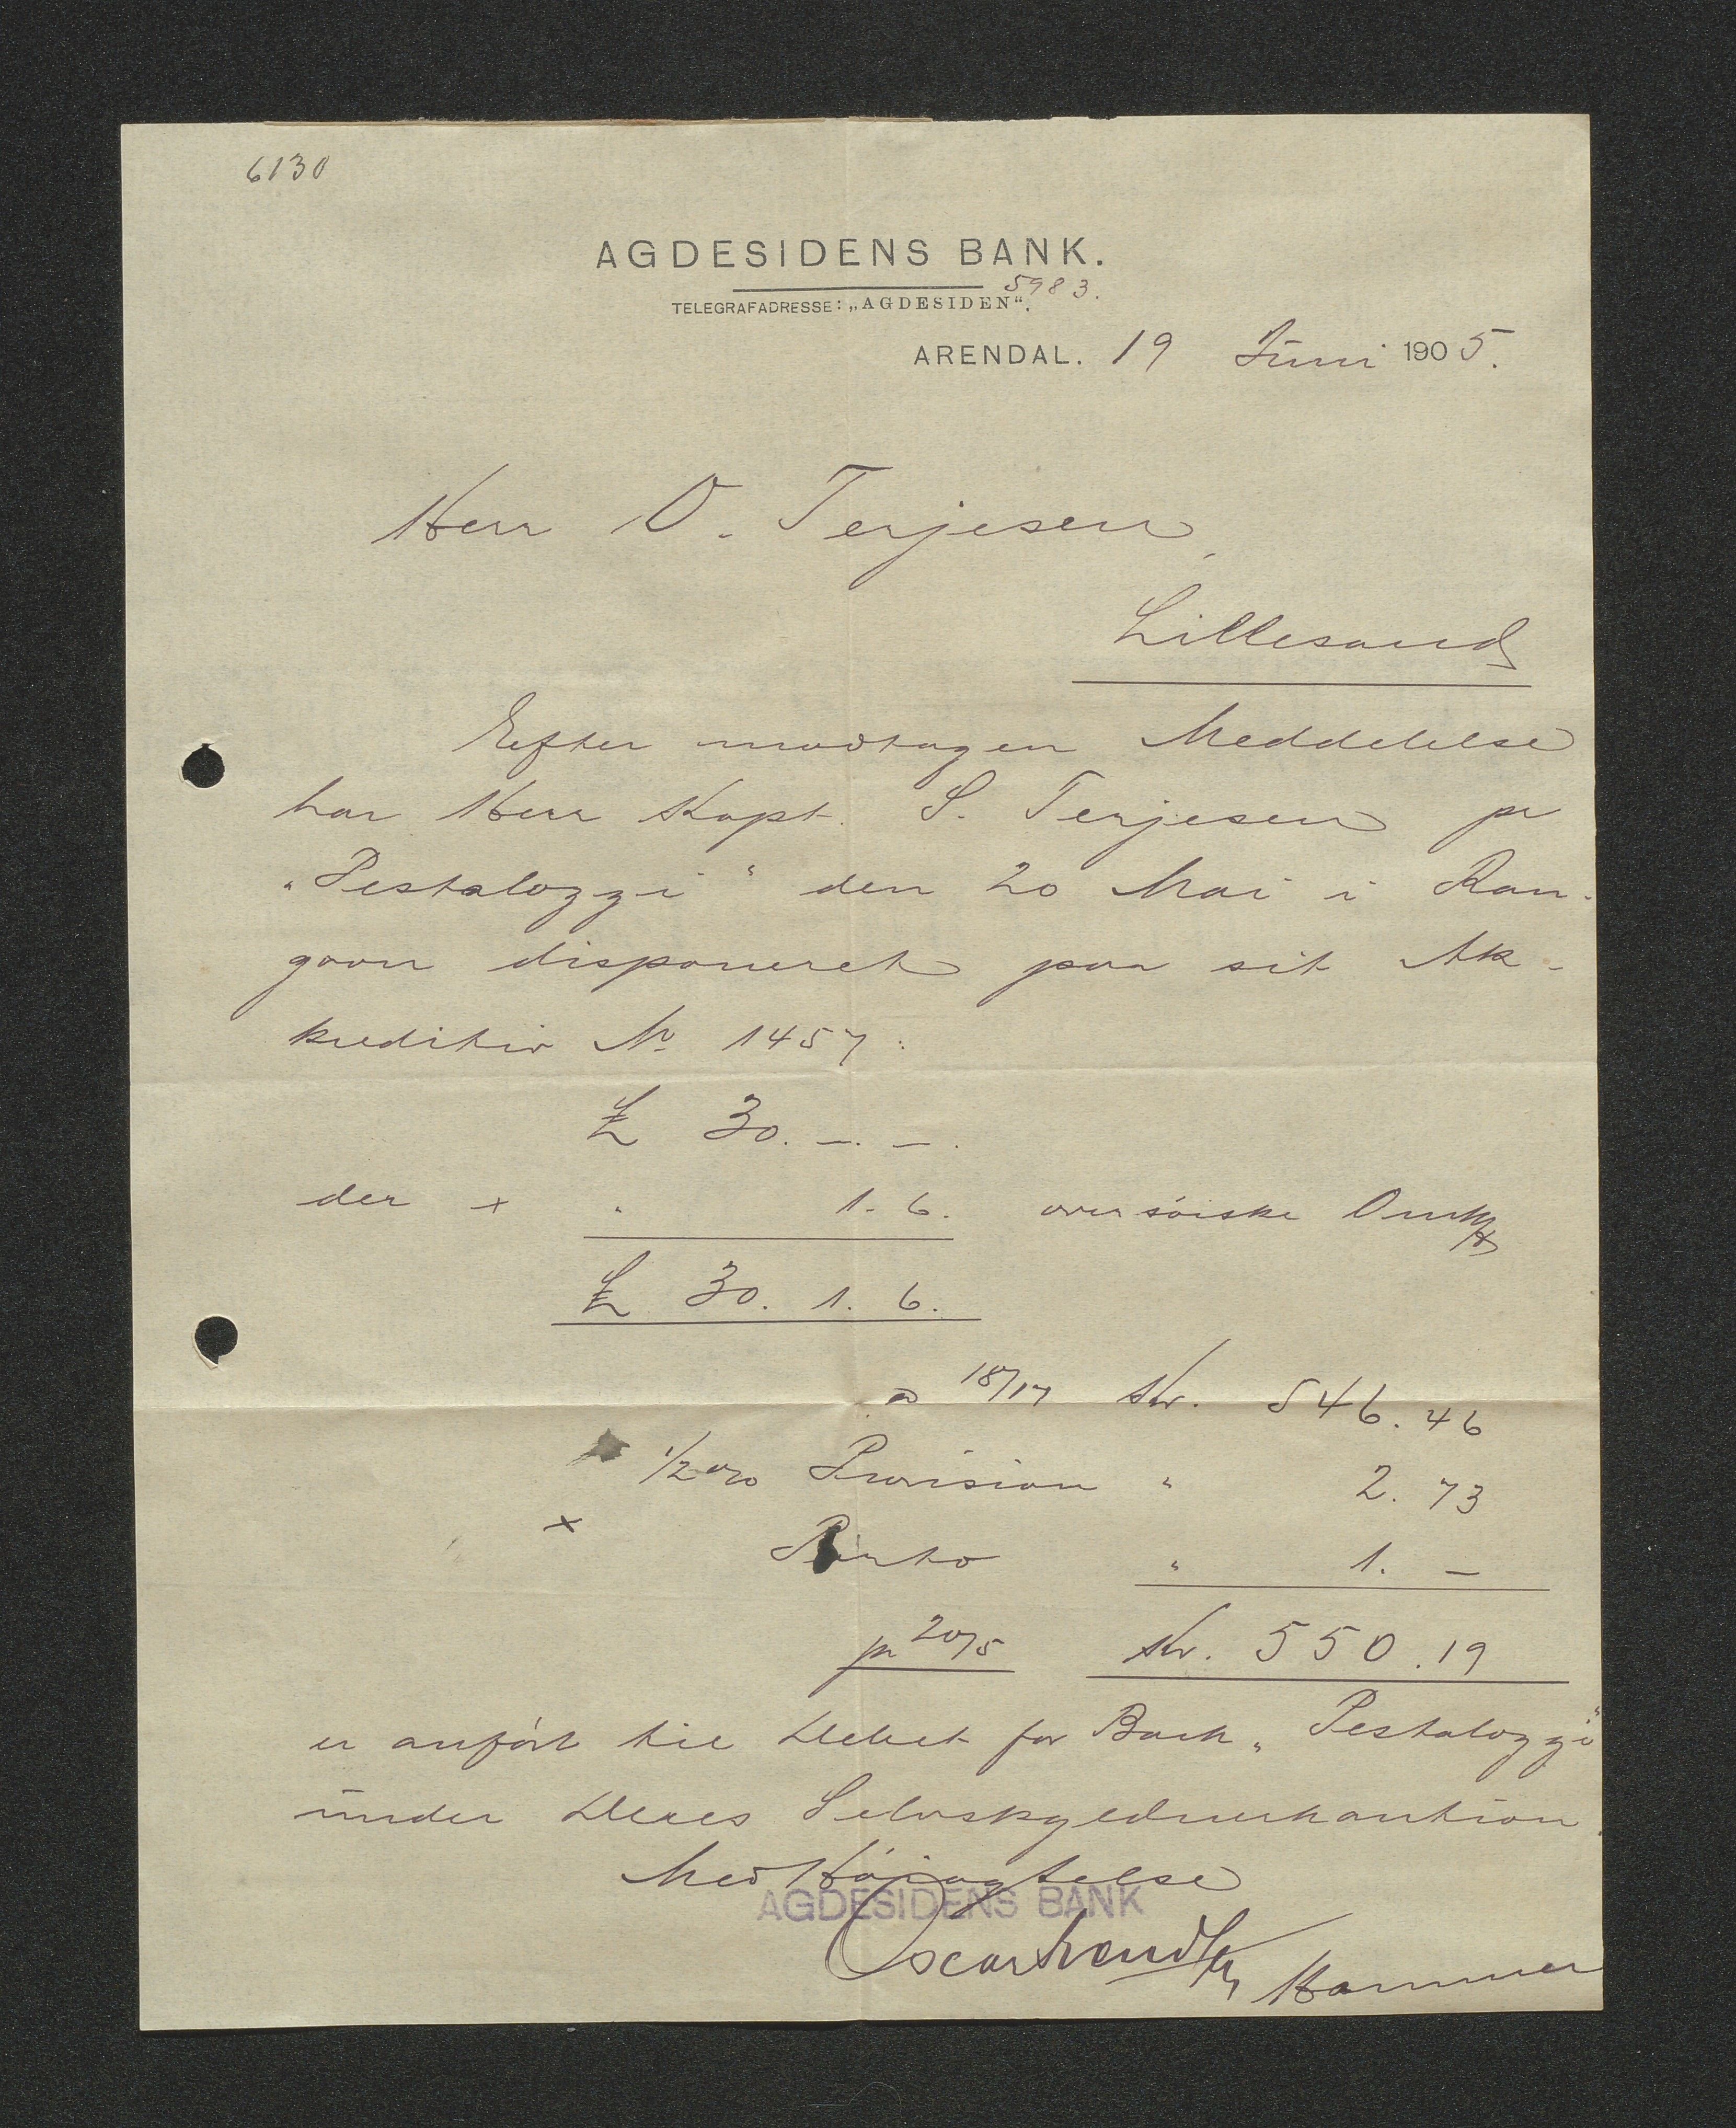 6130
AGDESIDENS BANK.
5983.
TELEGRAFADRESSE: „AGDESIDEN“.
ARENDAL. 19 Juni 1905.
Herr O. Terjesen,
Lillesand
Efter modtagen Meddelelse
har Herr Kapt. S. Terjesen pr
„Pestalozzi“ den 20 Mai i Ran-
goon disponeret paa sit Ak-
kreditiv No 1457:
£ 30. —. —.
der + " 1. 6. oversöiske Omk
£ 30. 1. 6.
a 18/17 Kr. 546.46
1/2 % Provision " 2.73
+ Porto " 1. —
pr 20/5 Kr. 550.19
er anfört til Debet for Bark „Pestalozzi“
under Deres Selvskyldnerkaution.
Med Höiagtelse
AGDESIDENS BANK
Oscar Hammer